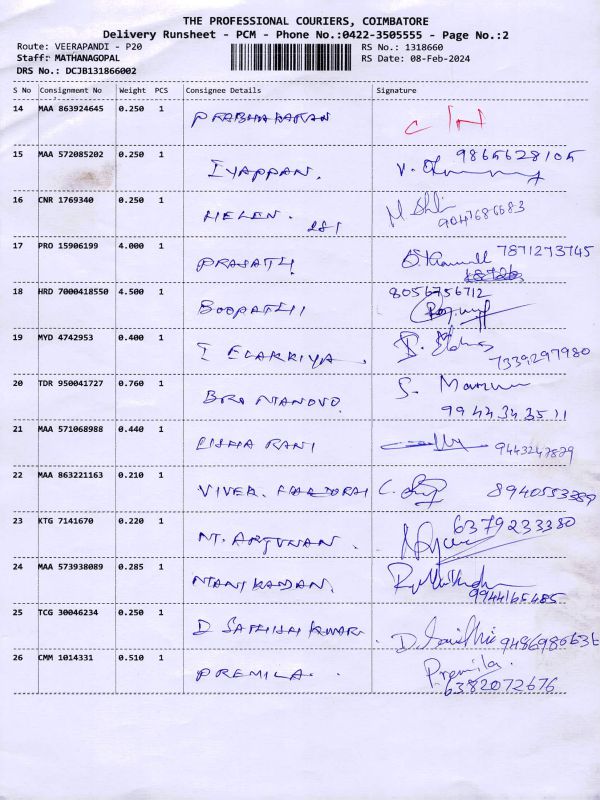 THE PROFESSIONAL COURIERS, COIMBATORE
Delivery Runsheet - PCM - Phone No.:0422-3505555 - Page No.:2
Route: VEERAPANDI - P20 RS No.: 1318660
Staff: MATHANAGOPAL RS Date: 08-Feb-2024
DRS No.: DCJB131866002
S No Consignment No Weight PCS Consignee Details Signature
14 MAA 863924645 0.250 1 PRABHAKARAN
15 MAA 572085202 0.250 1 IYAPPAN. 9865628105
16 CNR 1769340 0.250 1 HELEN.
17 PRO 15906199 4.000 1 PRASATH 7871273745
18 HRD 7000418550 4.500 1 BOOPATHI 8056756712
19 MYD 4742953 0.400 1 7339297980
20 TDR 950041727 0.760 1
21 MAA 571068988 0.440 1 LISHA RANI
22 MAA 863221163 0.210 1 8940553389
23 KTG 7141670 0.220 1 6379233380
24 MAA 573938089 0.285 1 MANIKANDAN. 9944165485
25 TCG 30046234 0.250 1 D SATHISH KUMAR
26 CMM 1014331 0.510 1 PREMILA. Premila.
6382072676